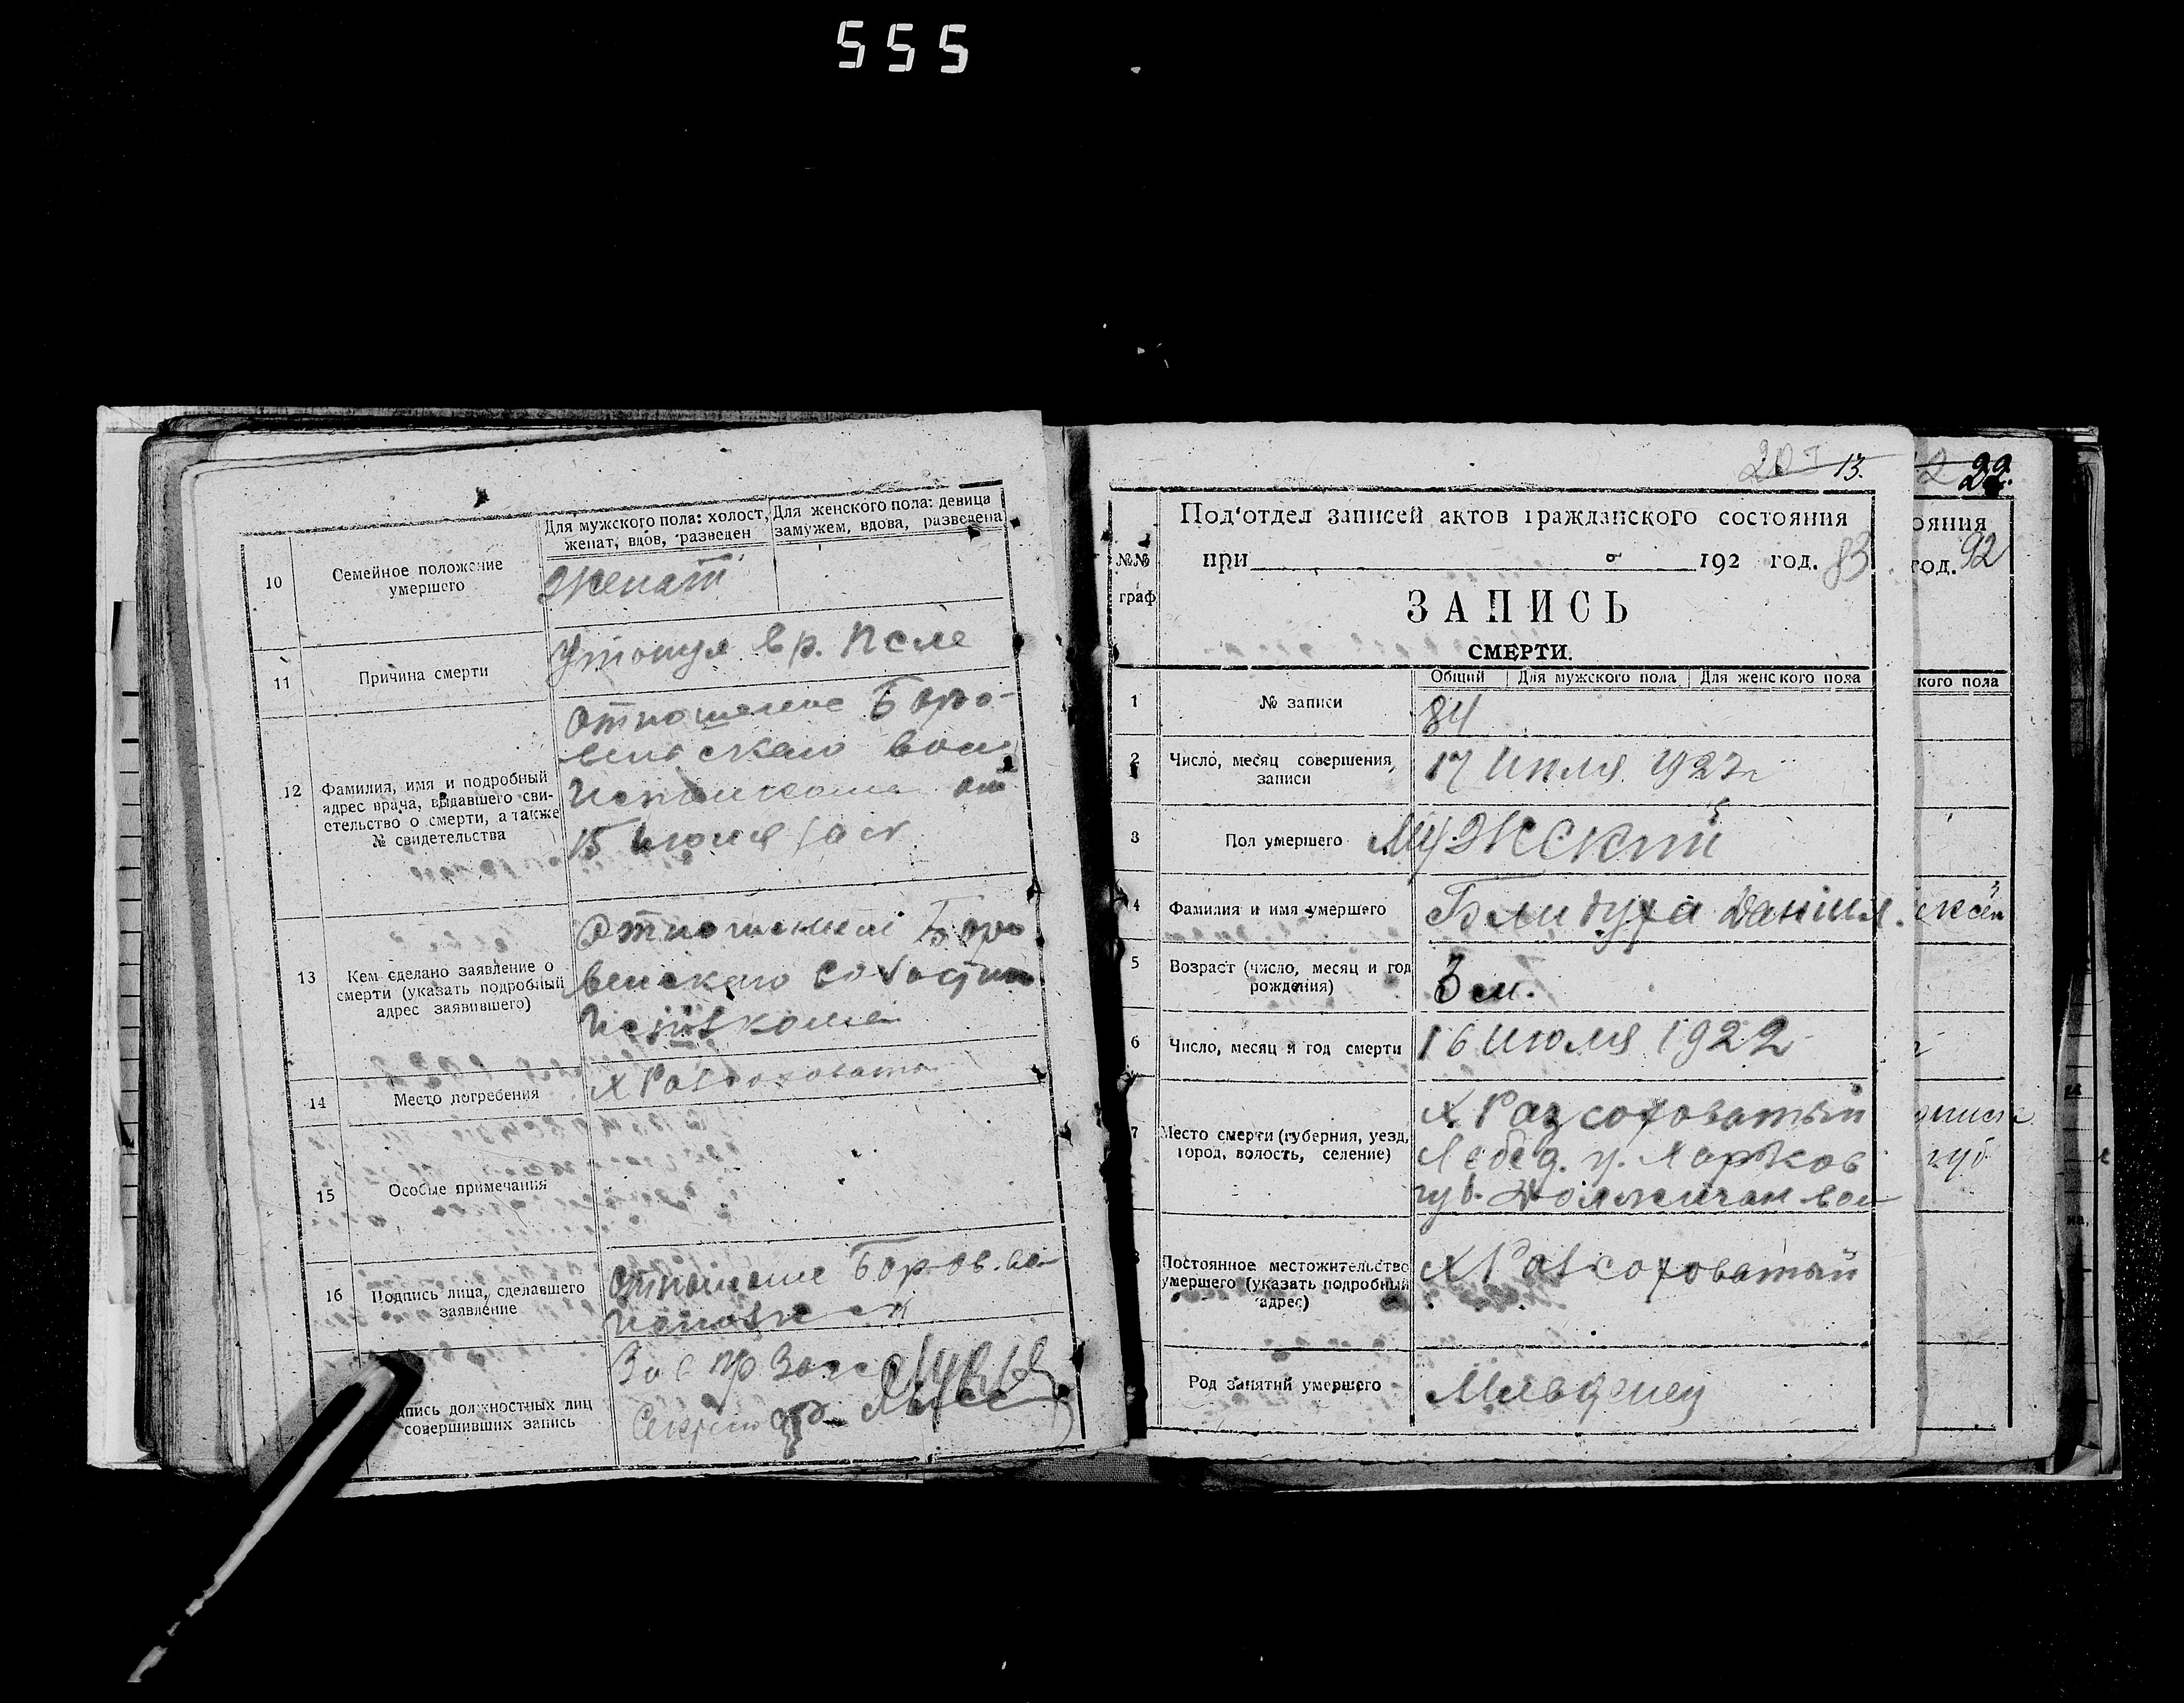 555
10
Семейное положение
умершего
Для мужского пола: холост,
женат, вдов, разведен
Для женского пола: девица
замужем, вдова, разведена
Женат
11
Причина смерти
Утонул в р. Псле
12
Фамилия, имя и подробный
адрес врача, выдавшего сви-
етельство о смерти, а также
№ свидетельства
Отношение Боро-
венскаго вол
Исполкома от
15 июля
13
Кем сделано заявление о
смерти (указать подробный
адрес заявившего)
Отношением Боро
венскаго
Исполкома
14
Место погребения
х Разсоховаты
15
Особые примечания
16
Подпись лица, сделавшего
заявление
Отношение Боров. во
пись должностных лиц
совершивших запись
Зав
Секретарь
20 13.
№№
граф
Под'отдел записей актов гражданского состояния
при 192 год. 83
ЗАПИСЬ
СМЕРТИ.
Общий Для мужского пола Для женского пола
1
№ записи
84
2
Число, месяц совершения
записи
17 Июля 1922 г
3
Пол умершего
Мужский
4
Фамилия и имя умершего
Даниил.
5
Возраст (число, месяц и год
рождения)
3 м.
6
Число, месяц и год смерти
16 июля 1922
7
Место смерти (губерния, уезд,
город, волость, селение)
х. Разсоховатый
Лебед. у. Харьков
губ. вол
Постоянное местожительство
умершего (указать подробный
адрес)
х Разсоховатый
Род занятий умершего
Младенец
22.
ояния
год. 92
кого пола
губ